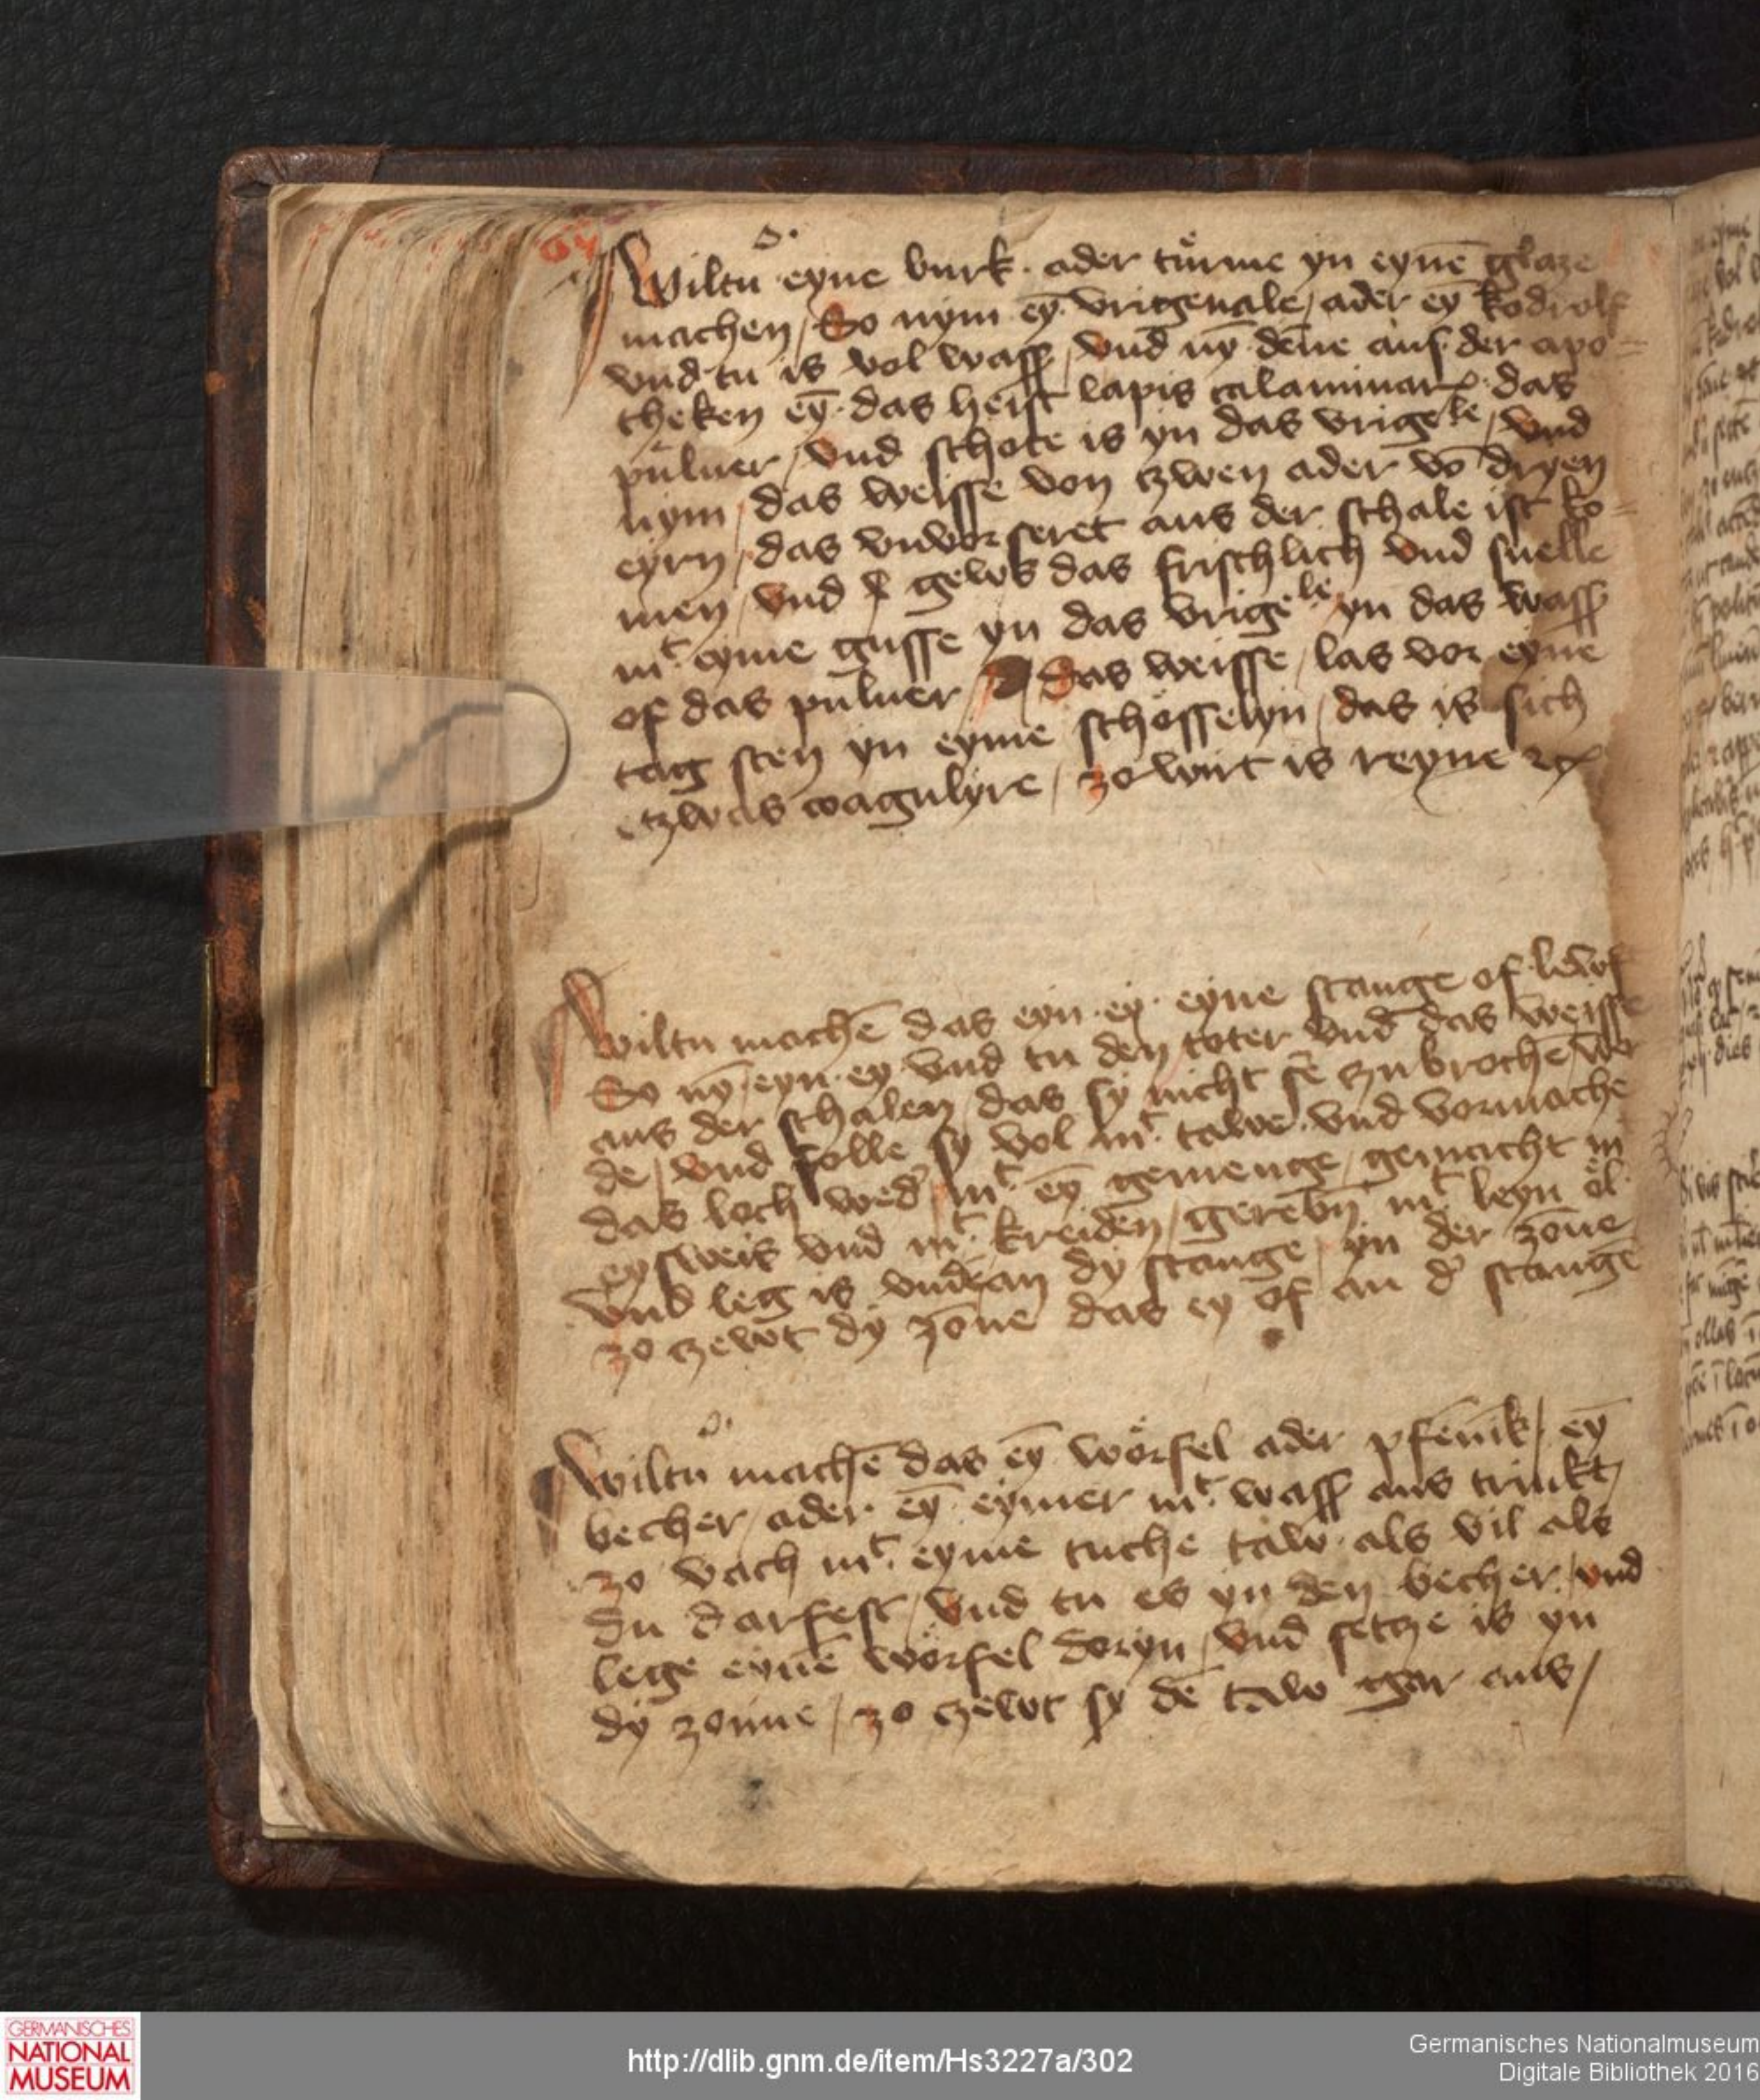 64
Wiltu eyne burk ader türme yn eynē glaze
machen / So nym eȳ vrigenale / ader eȳ kodrolf
vnd tu is vol wasſ / vnd nȳ deñe aus der apo=
theken eȳ das heist lapis calaminarꝫ das
puluer / vnd schote is yn das vrigele / vnd
nym / das weisse von czwen ader vō dryen
eyrn / das vnvorseret aus der schale ist ko=
men / vnd gews das frischlich vnd snelle
mt eyme gusse yn das vrigele yn das wasſ
of das puluer / das weisse / las vor eyne
tag sten yn eyme schösselyn / das is sich
etzwas coagulyre / zo wirt is reyne ꝛcꝫ
Wiltu machē das eyn ey eyne stange of lewft
So nȳ eyn ey vnd tu den toter vnd das weisse
aus der schalen / das sy nicht sēr zubrochē wer
de / vnd folle sy vol mt tawe vnd vormache
das loch wedˀ mt eȳ gemenge / gemacht mt
eysweis vnd mt kreiden / gerebn̄ mt leyn öl
vnd leg is vndēan dy stange / yn der zōne
zo czewt dy zōne das ey of an dˀ stangē
Wiltu machē das eȳ wörfel ader pfēnik / eȳ
becher / ader eȳ eymer mt wasſ aus trinkt /
zo vach mt eyme tuche taw als vil als
du darfest / vnd tu es yn den becher / vnd
lege eynē wörfel doryn / vnd setze is yn
dy zonne / zo czewt sy dē taw gar aus /
GERMANISCHES
NATIONAL
MUSEUM
http://dlib.gnm.de/item/Hs3227a/302
Germanisches Nationalmuseum
Digitale Bibliothek 2016